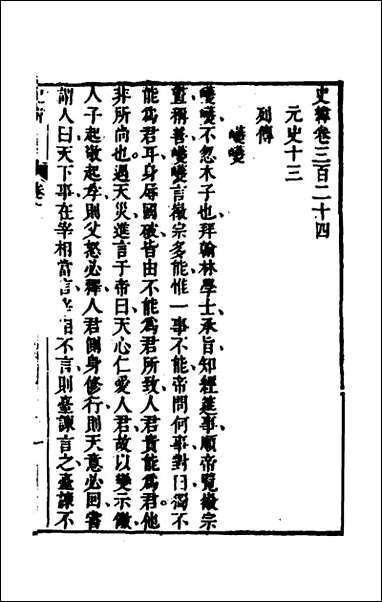 史緯卷三百二十四
元史十三
列傳
巙巙
巙巙不忽木子也拜翰林學士承旨知經筵事順帝覽徽宗
畫稱善巙巙言徽宗多能惟一事不能帝問何事對曰獨不
能爲君耳身辱國破皆由不能爲君所致人君貴能爲君他
非所尚也遇天災進言于帝曰天心仁愛人君故以變示儆
人子起敬起孝則父怒必釋人君側身修行則天意必回嘗
謂人曰天下事在宰相當言宰相不言則臺諫言之臺諫不